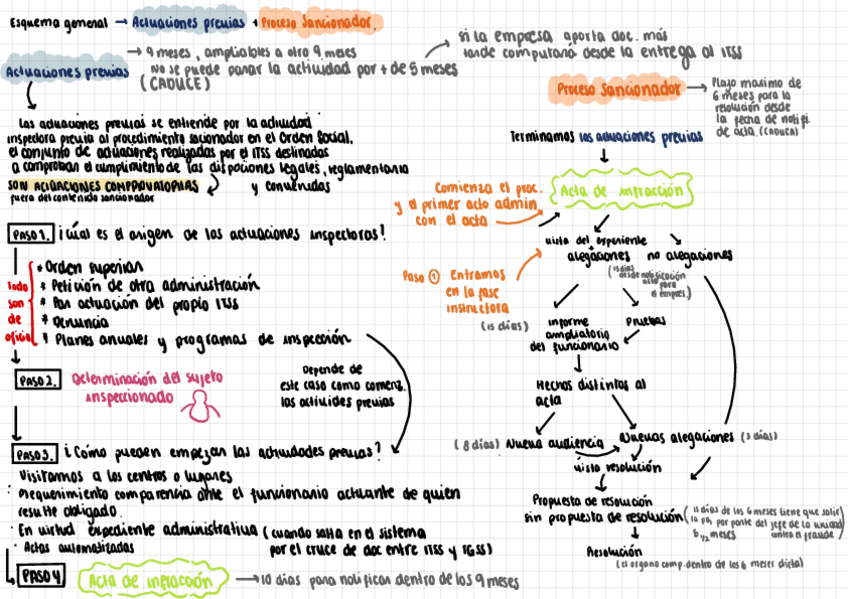 Esquema general → Actuaciones previas + Proceso Sancionador.
Actuaciones previas
→ 9 meses, ampliables a otro 9 meses
No se puede parar la actividad por + de 5 meses
(CADUCE)
si la empresa aporta doc. más
tarde computará desde la entrega al ITSS
Las actuaciones previas se entiende por la actividad
inspectora previa al procedimiento sacionador en el Orden Social.
el conjunto de actuaciones realizadas por el ITSS destinadas
a comprobar el cumplimiento de las dispociones legales, reglamentario
y convenidas
SON ACTUACIONES COMPROVATORIAS
fuera del contenido sancionador
PASO 1. ¿Cuál es el origen de las actuaciones inspectoras?
Todo
son
de
oficio
* Orden superior
* Petición de otra administración
* Por actuación del propio ITSS
* Denuncia
* Planes anuales y programas de inspección
PASO 2. Determinación del sujeto
inspeccionado
Depende de
este caso como comenz.
las actividades previas
PASO 3. ¿Cómo pueden empezar las actividades previas?
Visitamos a los centros o lugares
· Requerimiento comparencia ante el funcionario actuante de quien
resulte obligado.
· En virtud expediente administrativa (cuando salta en el sistema
por el cruce de doc entre ITSS y TGSS)
· Actas automatizadas
PASO 4 Acta de infracción → 10 días para notificar dentro de los 9 meses
Proceso Sancionador → Plazo maximo de
6 meses para la
resolución desde
la fecha de notifi.
de acta. (CADUCA)
Terminamos las actuaciones previas
Acta de infracción
Comienza el proc.
y el primer acto admin
con el acta
vista del expediente
alegaciones no alegaciones
(15 días
desde notificación
acta para
el empres.)
Paso ① Entramos
en la fase
instructora
(15 días) Informe
ampliatorio
del funcionario
Pruebas
Hechos distintos al
acta
(8 días) Nueva audiencia Nuevas alegaciones (3 días)
visto resolución
Propuesta de resolución
sin propuesta de resolución
por parte del jefe de la unidad
contra el fraude)
Resolución